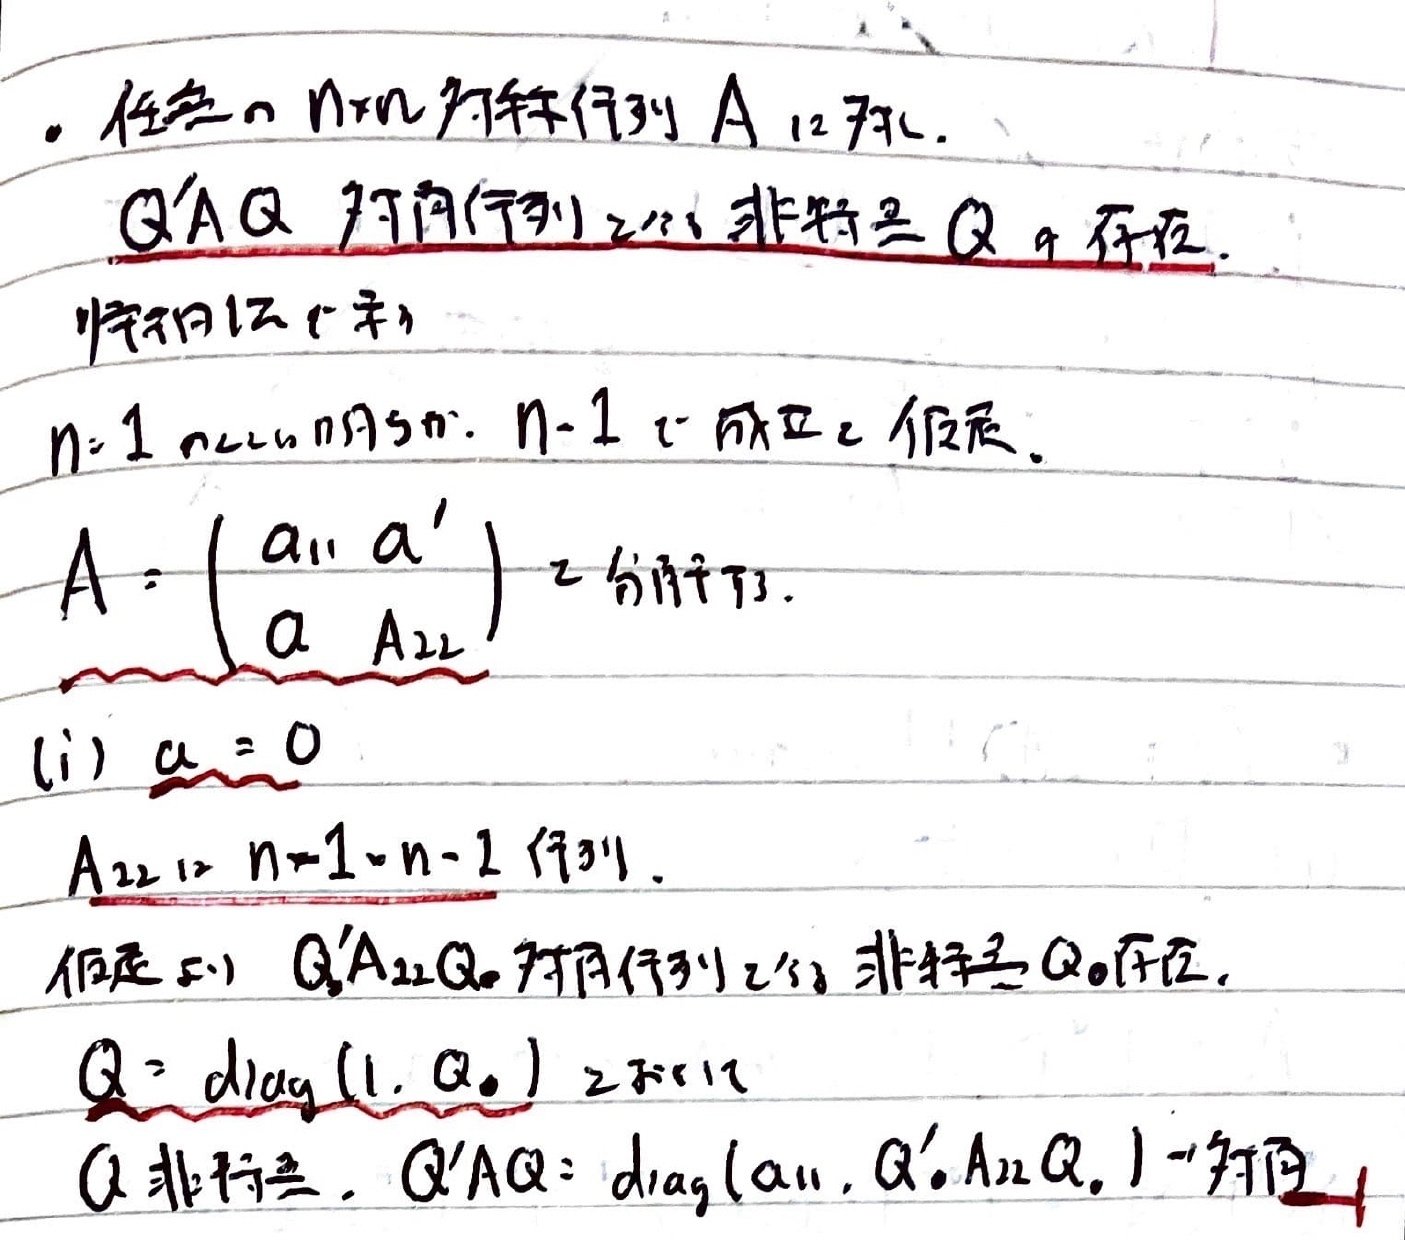 ・任意の n×n 対称行列 A に対し.
Q'AQ 対角行列となる 非特異 Q が 存在.
帰納法で示す
n=1 のときは明らか. n-1 で 成立と 仮定.
A = ( a₁₁ a' と分解する.
a A₂₂ )
(i) a = 0
A₂₂は n-1×n-1 行列.
仮定より Q₀'A₂₂Q₀ 対角行列となる 非特異 Q₀存在.
Q = diag(1, Q₀) とおくと
Q 非特異. Q'AQ = diag(a₁₁, Q₀'A₂₂Q₀) → 対角